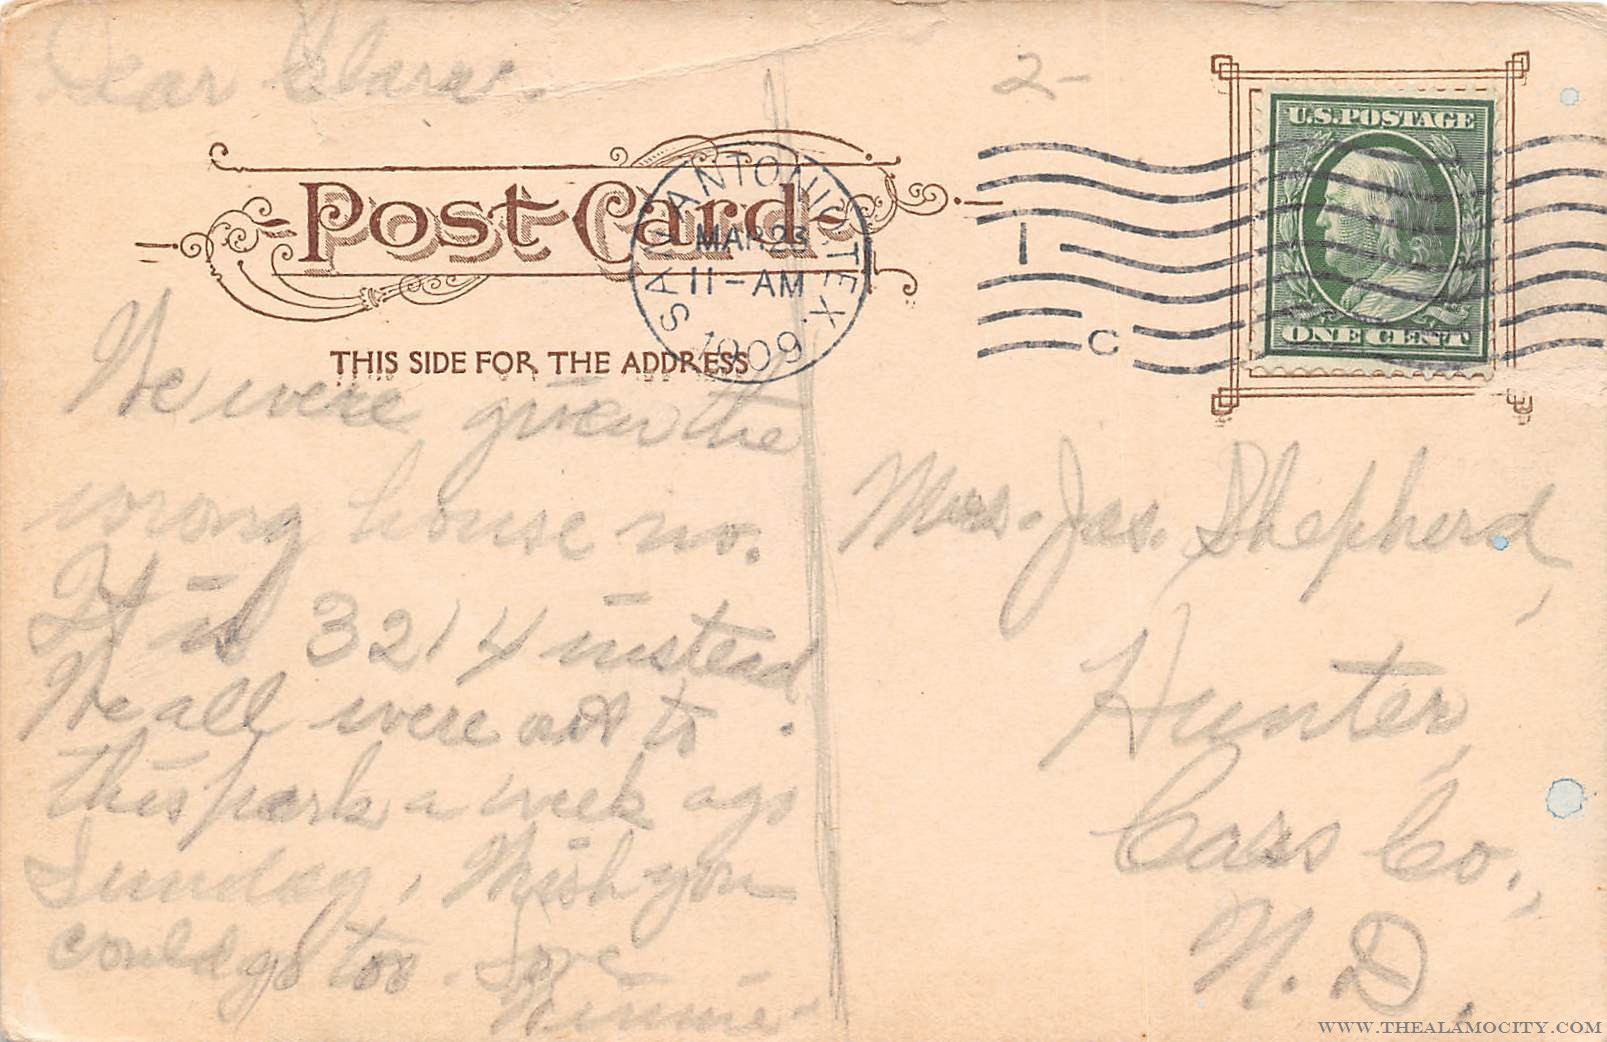 Dear Clara.
2-
U.S. POSTAGE
ONE CENT
Post Card
SAN ANTONIO, TEX.
MAR 23
11-AM
1909
1
C
THIS SIDE FOR THE ADDRESS
We were given the
wrong house no.
It is 3214 instead.
We all were out to
this park a week ago
Sunday, Wish you
could go too. Love
Winnie-
Mrs. Jas. Shepherd,
Hunter,
Cass Co.,
N.D.
WWW.THEALAMOCITY.COM